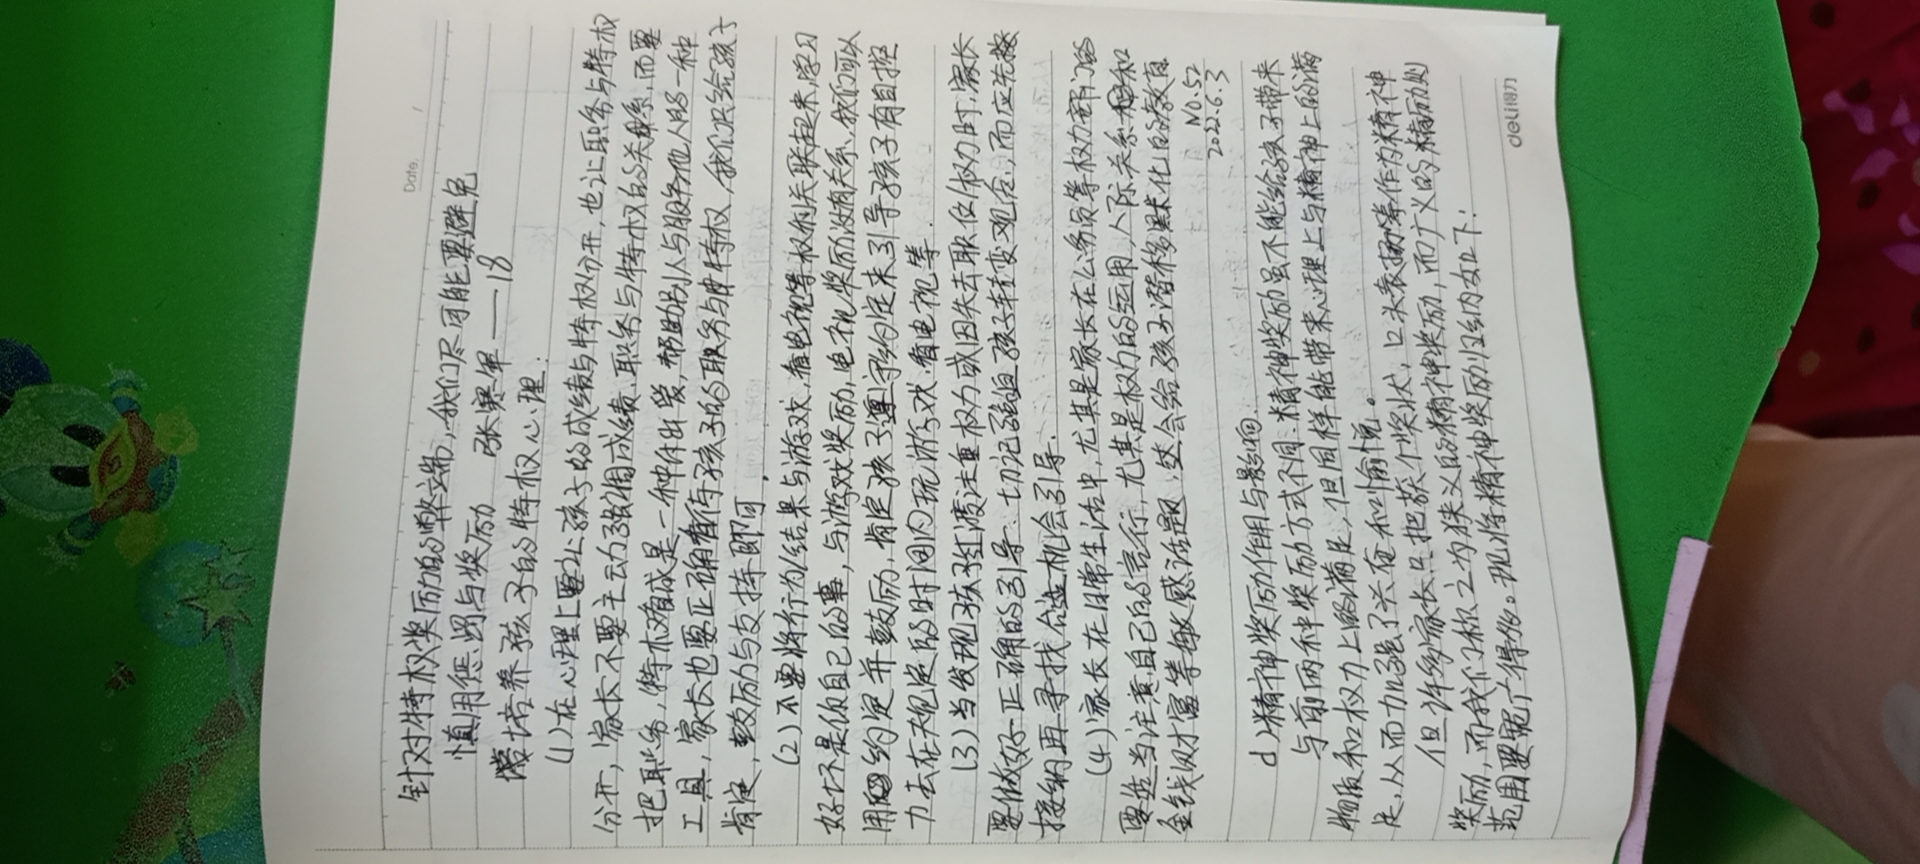 Date.
针对特权奖励的弊端,我们尽可能要避免
慎用惩罚与奖励 张寒军——18
培养孩子的特权心理.
(1)在心理上要让孩子的成绩与特权分开,也让职务与特权
分开,家长不要主动强调成绩、职务与特权的关系,而要
把职务,特权看成是一种付出爱、帮助别人与服务他人的一种
工具,家长也要正确看待孩子的职务与特权,我们只给孩子
肯定、鼓励与支持即可.
(2)不要将行为/结果与游戏、看电视等权利关联起来,学习
好坏是他自己的事,与游戏奖励,电视奖励没有关系.我们可以
用约定并鼓励,肯定孩子遵守约定来引导孩子有自控
力去在规定的时间内玩游戏、看电视等.
(3)当发现孩子过度注重权力或因失去职位/权力时,家长
要做好正确的引导.切记强迫孩子转变观念,而应先接
接纳再寻找合适机会引导.
(4)家长在日常生活中,尤其是家长在公务员等权力部门的
要适当注意自己的言行,尤其是权力的运用,人际关系和
金钱财富等敏感话题,这会给孩子潜移默化的教育
NO.52
2022.6.3
d)精神奖励作用与影响.
与前两种奖励方式不同.精神奖励虽不能给孩子带来
物质和权力上的满足,但同样能带来心理上与精神上的满
足,从而加强了关有和愉悦。
但许多家长只把获个奖状,口头表扬等作为精神
奖励,而我们称之为狭义的精神奖励,而广义的精励则
范围要宽广得多。现将精神奖励归纳如下:
deli得力